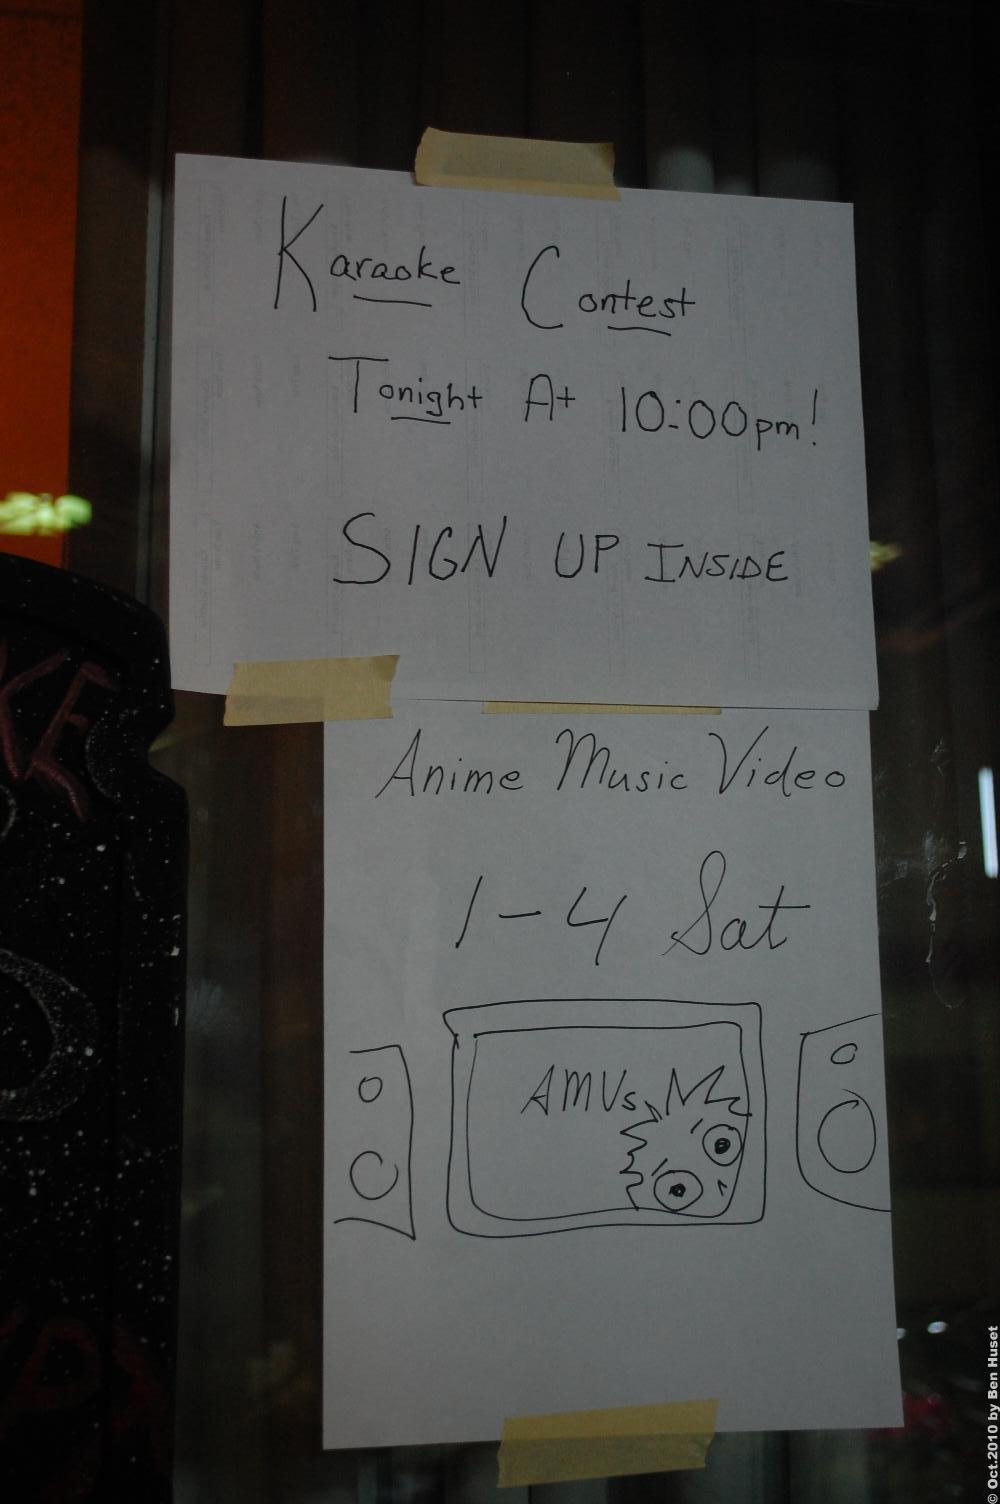 Karaoke Contest
Tonight At 10:00pm!
SIGN UP INSIDE
Anime Music Video
1-4 Sat
AMVs
© Oct.2010 by Ben Huset